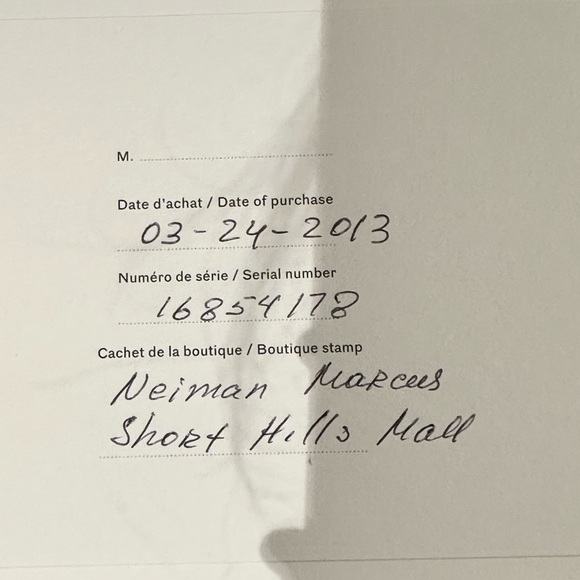 M.
Date d'achat / Date of purchase
03-24-2013
Numéro de série / Serial number
16854178
Cachet de la boutique / Boutique stamp
Neiman Marcus
Short Hills Mall